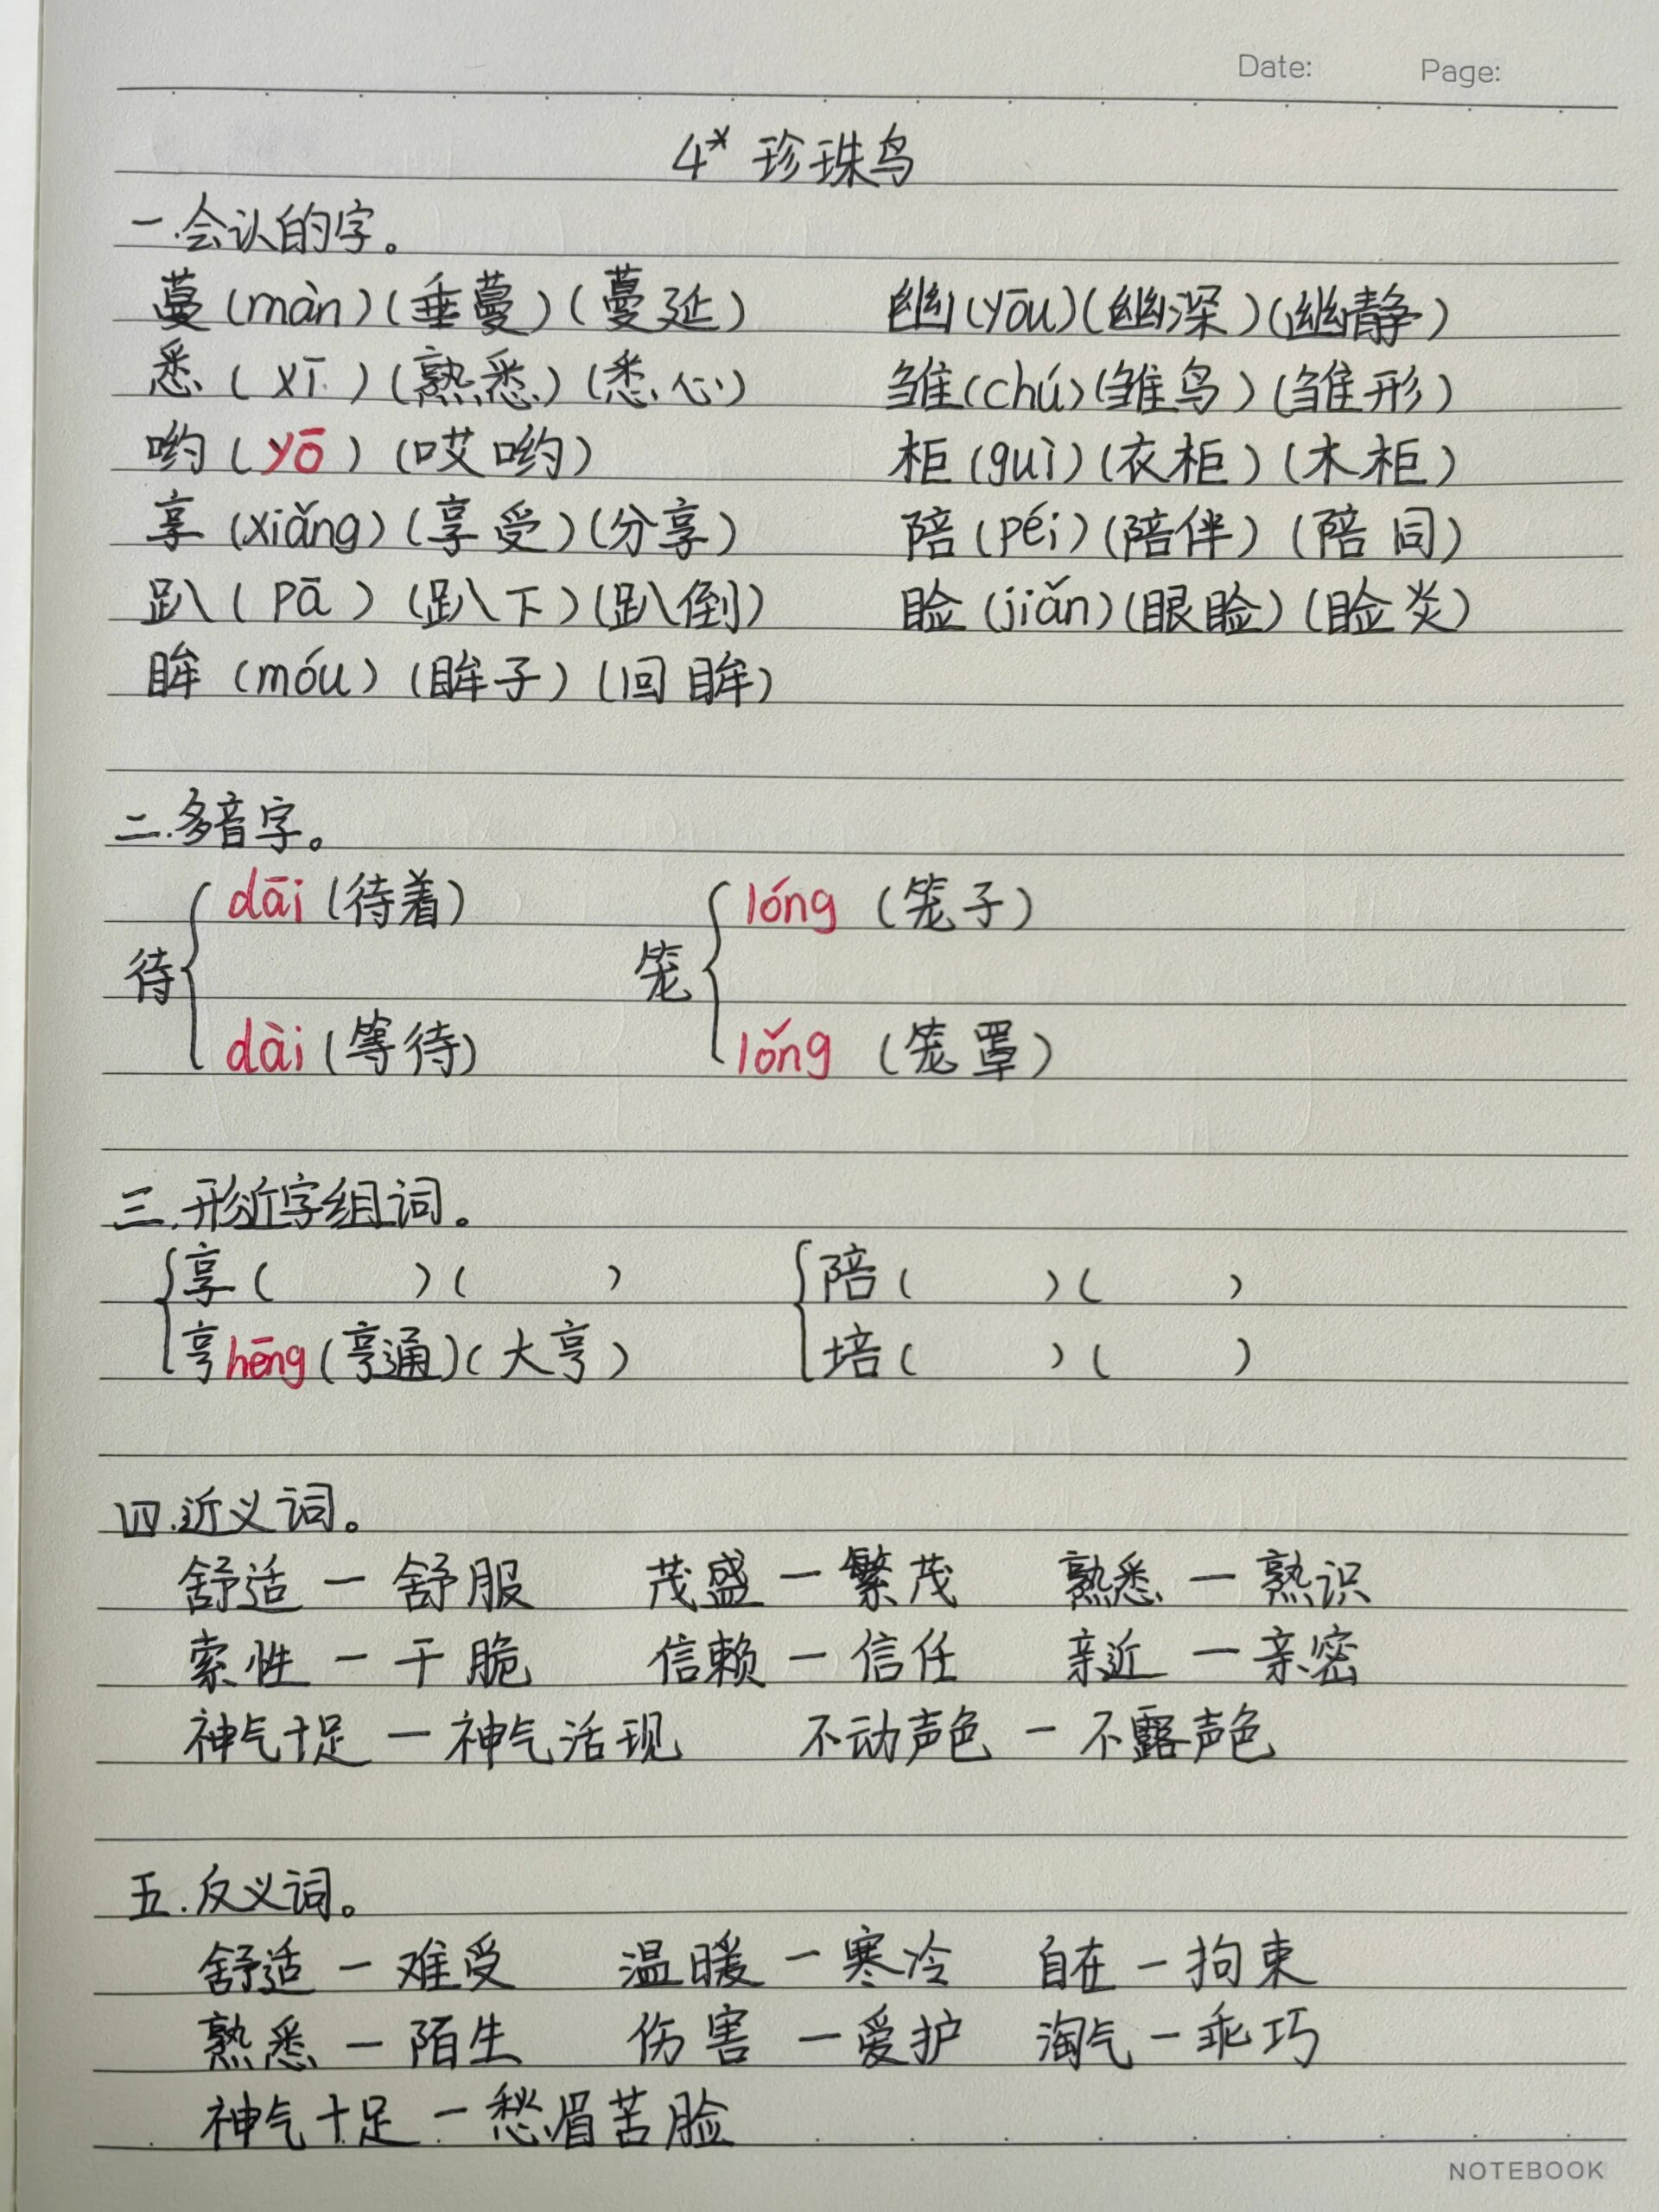 Date: Page:
4* 珍珠鸟
一.会认的字。
蔓(màn)(垂蔓)(蔓延) 幽(yōu)(幽深)(幽静)
悉(xī)(熟悉)(悉心) 雏(chú)(雏鸟)(雏形)
哟(yō)(哎哟) 柜(guì)(衣柜)(木柜)
享(xiǎng)(享受)(分享) 陪(péi)(陪伴)(陪同)
趴(pā)(趴下)(趴倒) 睑(jiǎn)(眼睑)(睑炎)
眸(móu)(眸子)(回眸)
二.多音字。
dāi(待着) lóng(笼子)
待 笼
dài(等待) lǒng(笼罩)
三.形近字组词。
享( )( ) 陪( )( )
亨hēng(亨通)(大亨) 培( )( )
四.近义词。
舒适一舒服 茂盛一繁茂 熟悉一熟识
索性一干脆 信赖一信任 亲近一亲密
神气十足一神气活现 不动声色一不露声色
五.反义词。
舒适一难受 温暖一寒冷 自在一拘束
熟悉一陌生 伤害一爱护 淘气一乖巧
神气十足一愁眉苦脸
NOTEBOOK